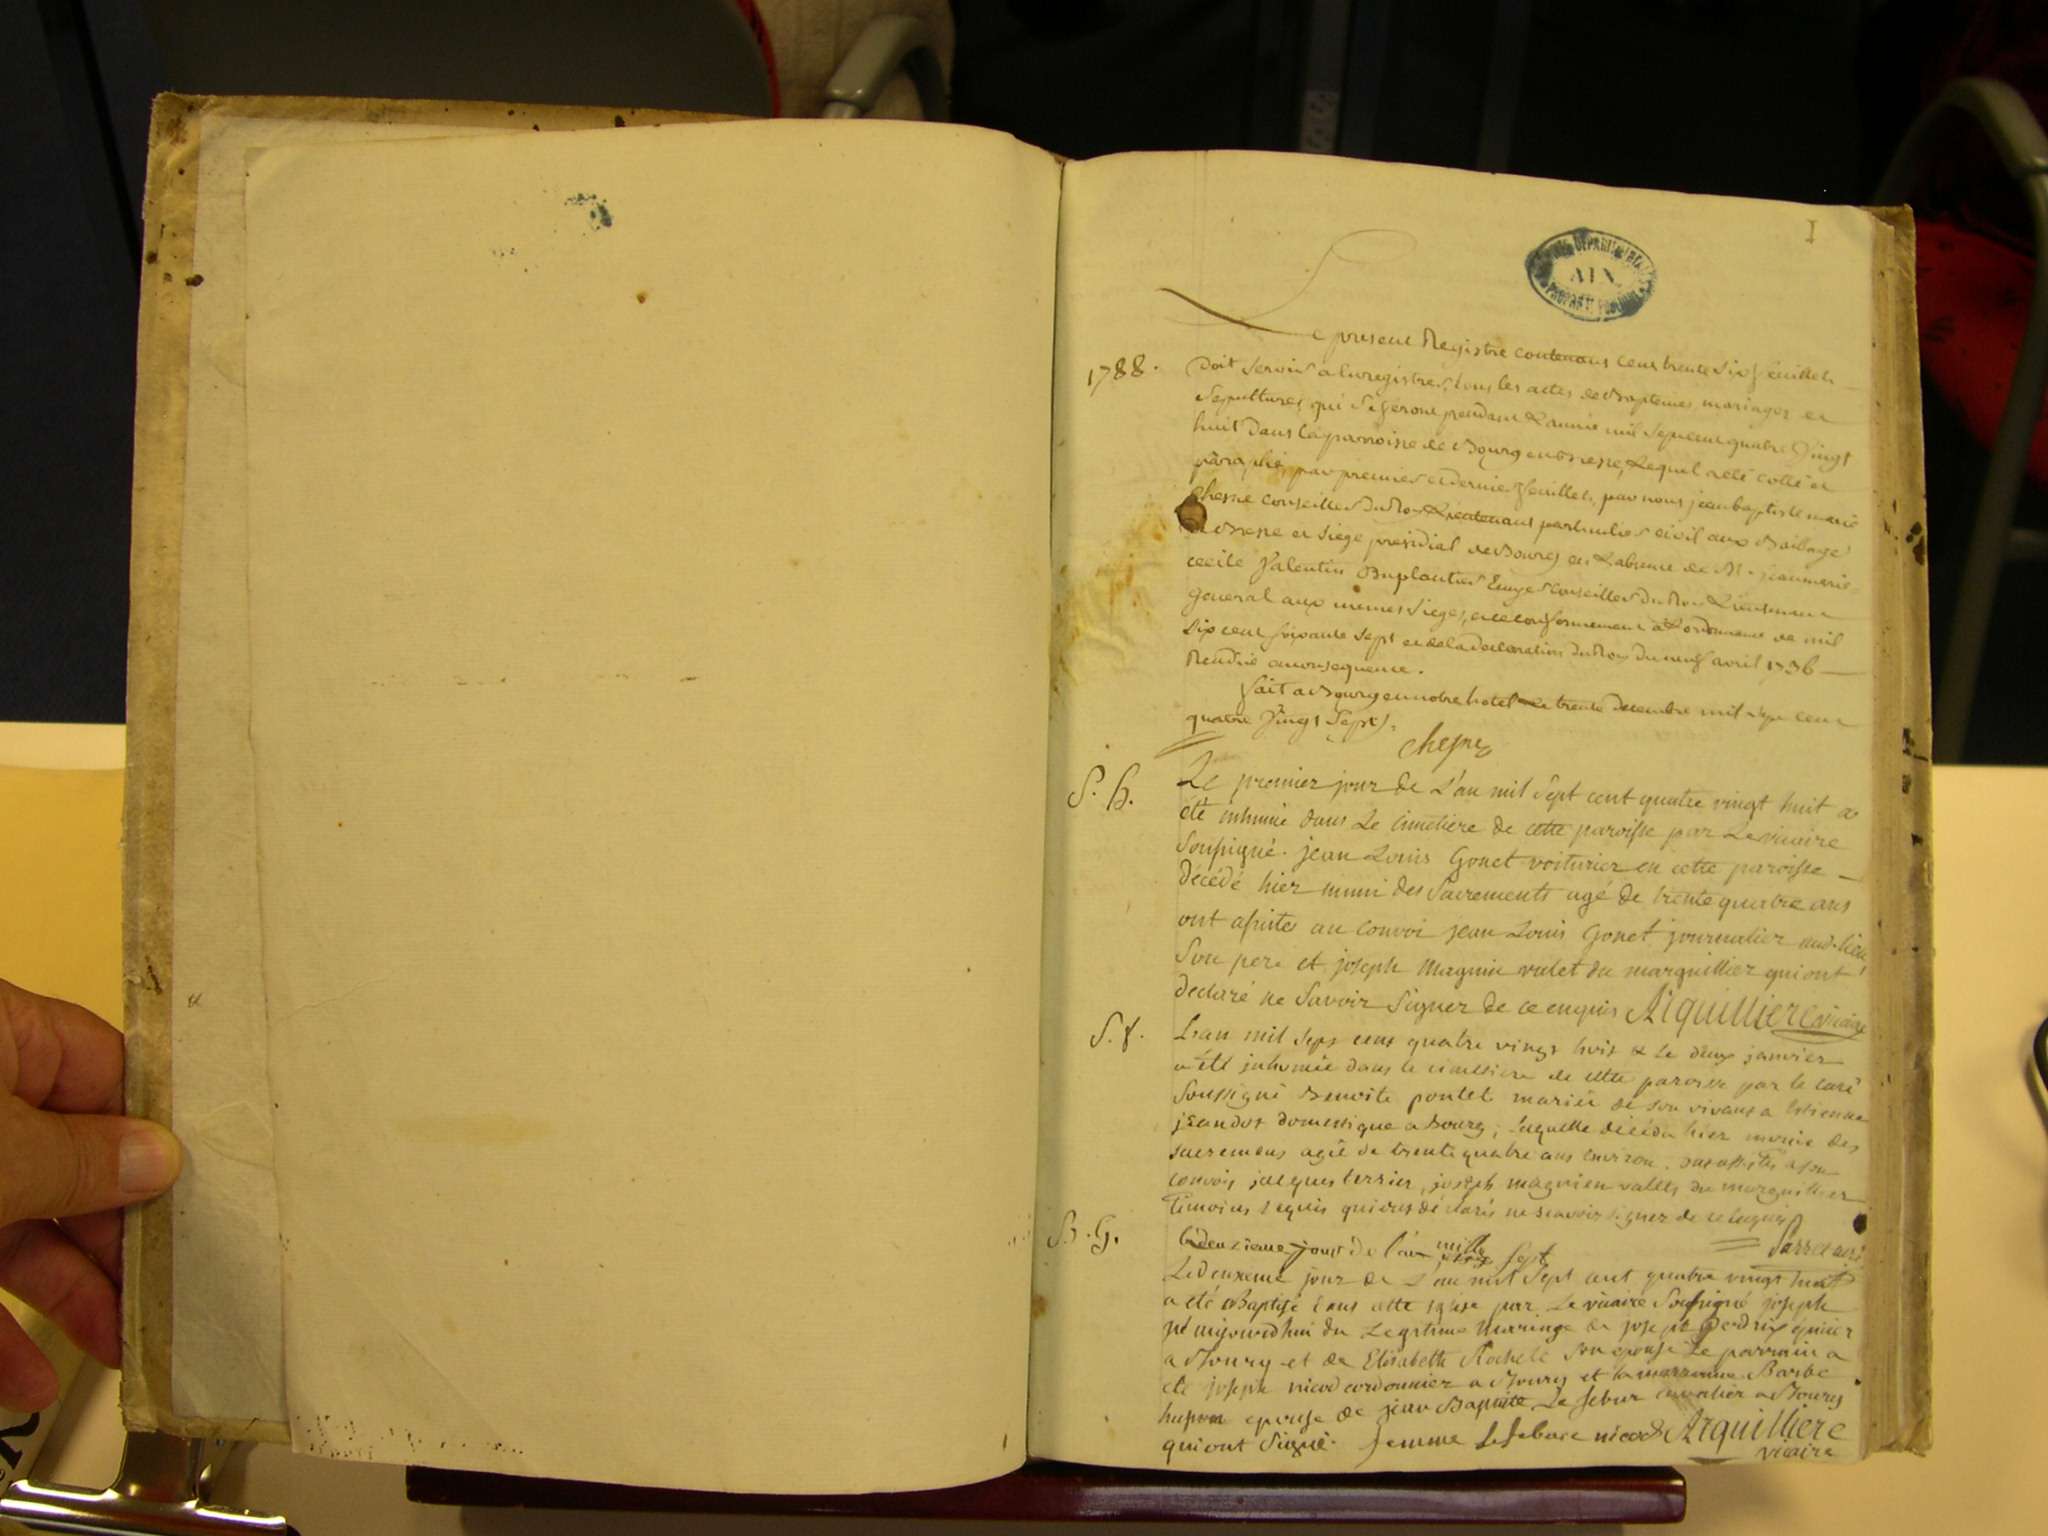 1
ARCHIVES DEPARTEMENTALES
AIN
PROPRIÉTÉ PUBLIQUE
Le present Registre contenant cent trente six feuillets
1788. Doit servir a Enregistrer tous les actes de Baptemes, mariages et
Sepultures qui se feront pendant L'année mil sept cent quatre vingt
huit dans la parroisse de Bourg en Bresse, Lequel a été cotté et
paraphé, par premier et dernier feuillet, par nous jean baptiste marie
Chesne conseiller du Roy Lieutenant particulier civil aux Bailliage
de Bresse et siege presidial de Bourg en L'absence de M. jean marie
cecile Valentin Duplantier conseiller du Roy Lieutenant
general aux memes sieges, et ce conformement a L'ordonnance de mil
six cent soixante sept et de la declaration du Roy du neuf avril 1736
Rendüe en consequence.
fait a Bourg en notre hotel le trente decembre mil sept cent
quatre vingt sept.
Chesne
S. h. Le premier jour de L'an mil Sept cent quatre vingt huit a
été inhumé dans Le cimetière de cette paroisse par Le vicaire
Soussigné jean Louis Gonet voiturier en cette paroisse
décédé hier muni des Sacrements agé de trente quatre ans
ont assisté au convoi jean Louis Gonet journalier aud. lieu
Son pere et joseph Magnin valet du marguillier qui ont
declaré ne Savoir Signer de ce enquis Arquilliere vicaire
S. f. L'an mil sept cent quatre vingt huit & le deux janvier
a été inhumée dans le cimetiere de cette paroisse par le curé
Soussigné Benoite pontet mariée de son vivant a Estienne
jeandot domestique a Bourg; laquelle décéda hier munie des
sacremens agée de trente quatre ans environ. ont assistés a son
convoy jacques terrier, joseph magnien vallets du marguillier
Temoins requis qui ont déclarés ne scavoir signer de ce enquis
curé
B. G. Le deuxieme jour de l'an mille sept
Le deuxieme jour de L'an mil Sept cent quatre vingt huit
a été Baptisé dans cette Eglise par Le vicaire Soussigné joseph
né aujourd'hui du Legitime Mariage de joseph Perdrix épicier
a Bourg et de Elisabeth Rochele Son epouse Le parrain a
été joseph nicod cordonnier a Bourg et la marraine Barbe
epouse de jean Baptiste Le febur cavalier a Bourg
qui ont Signé. femme Lefebure nicod Arquilliere
vicaire